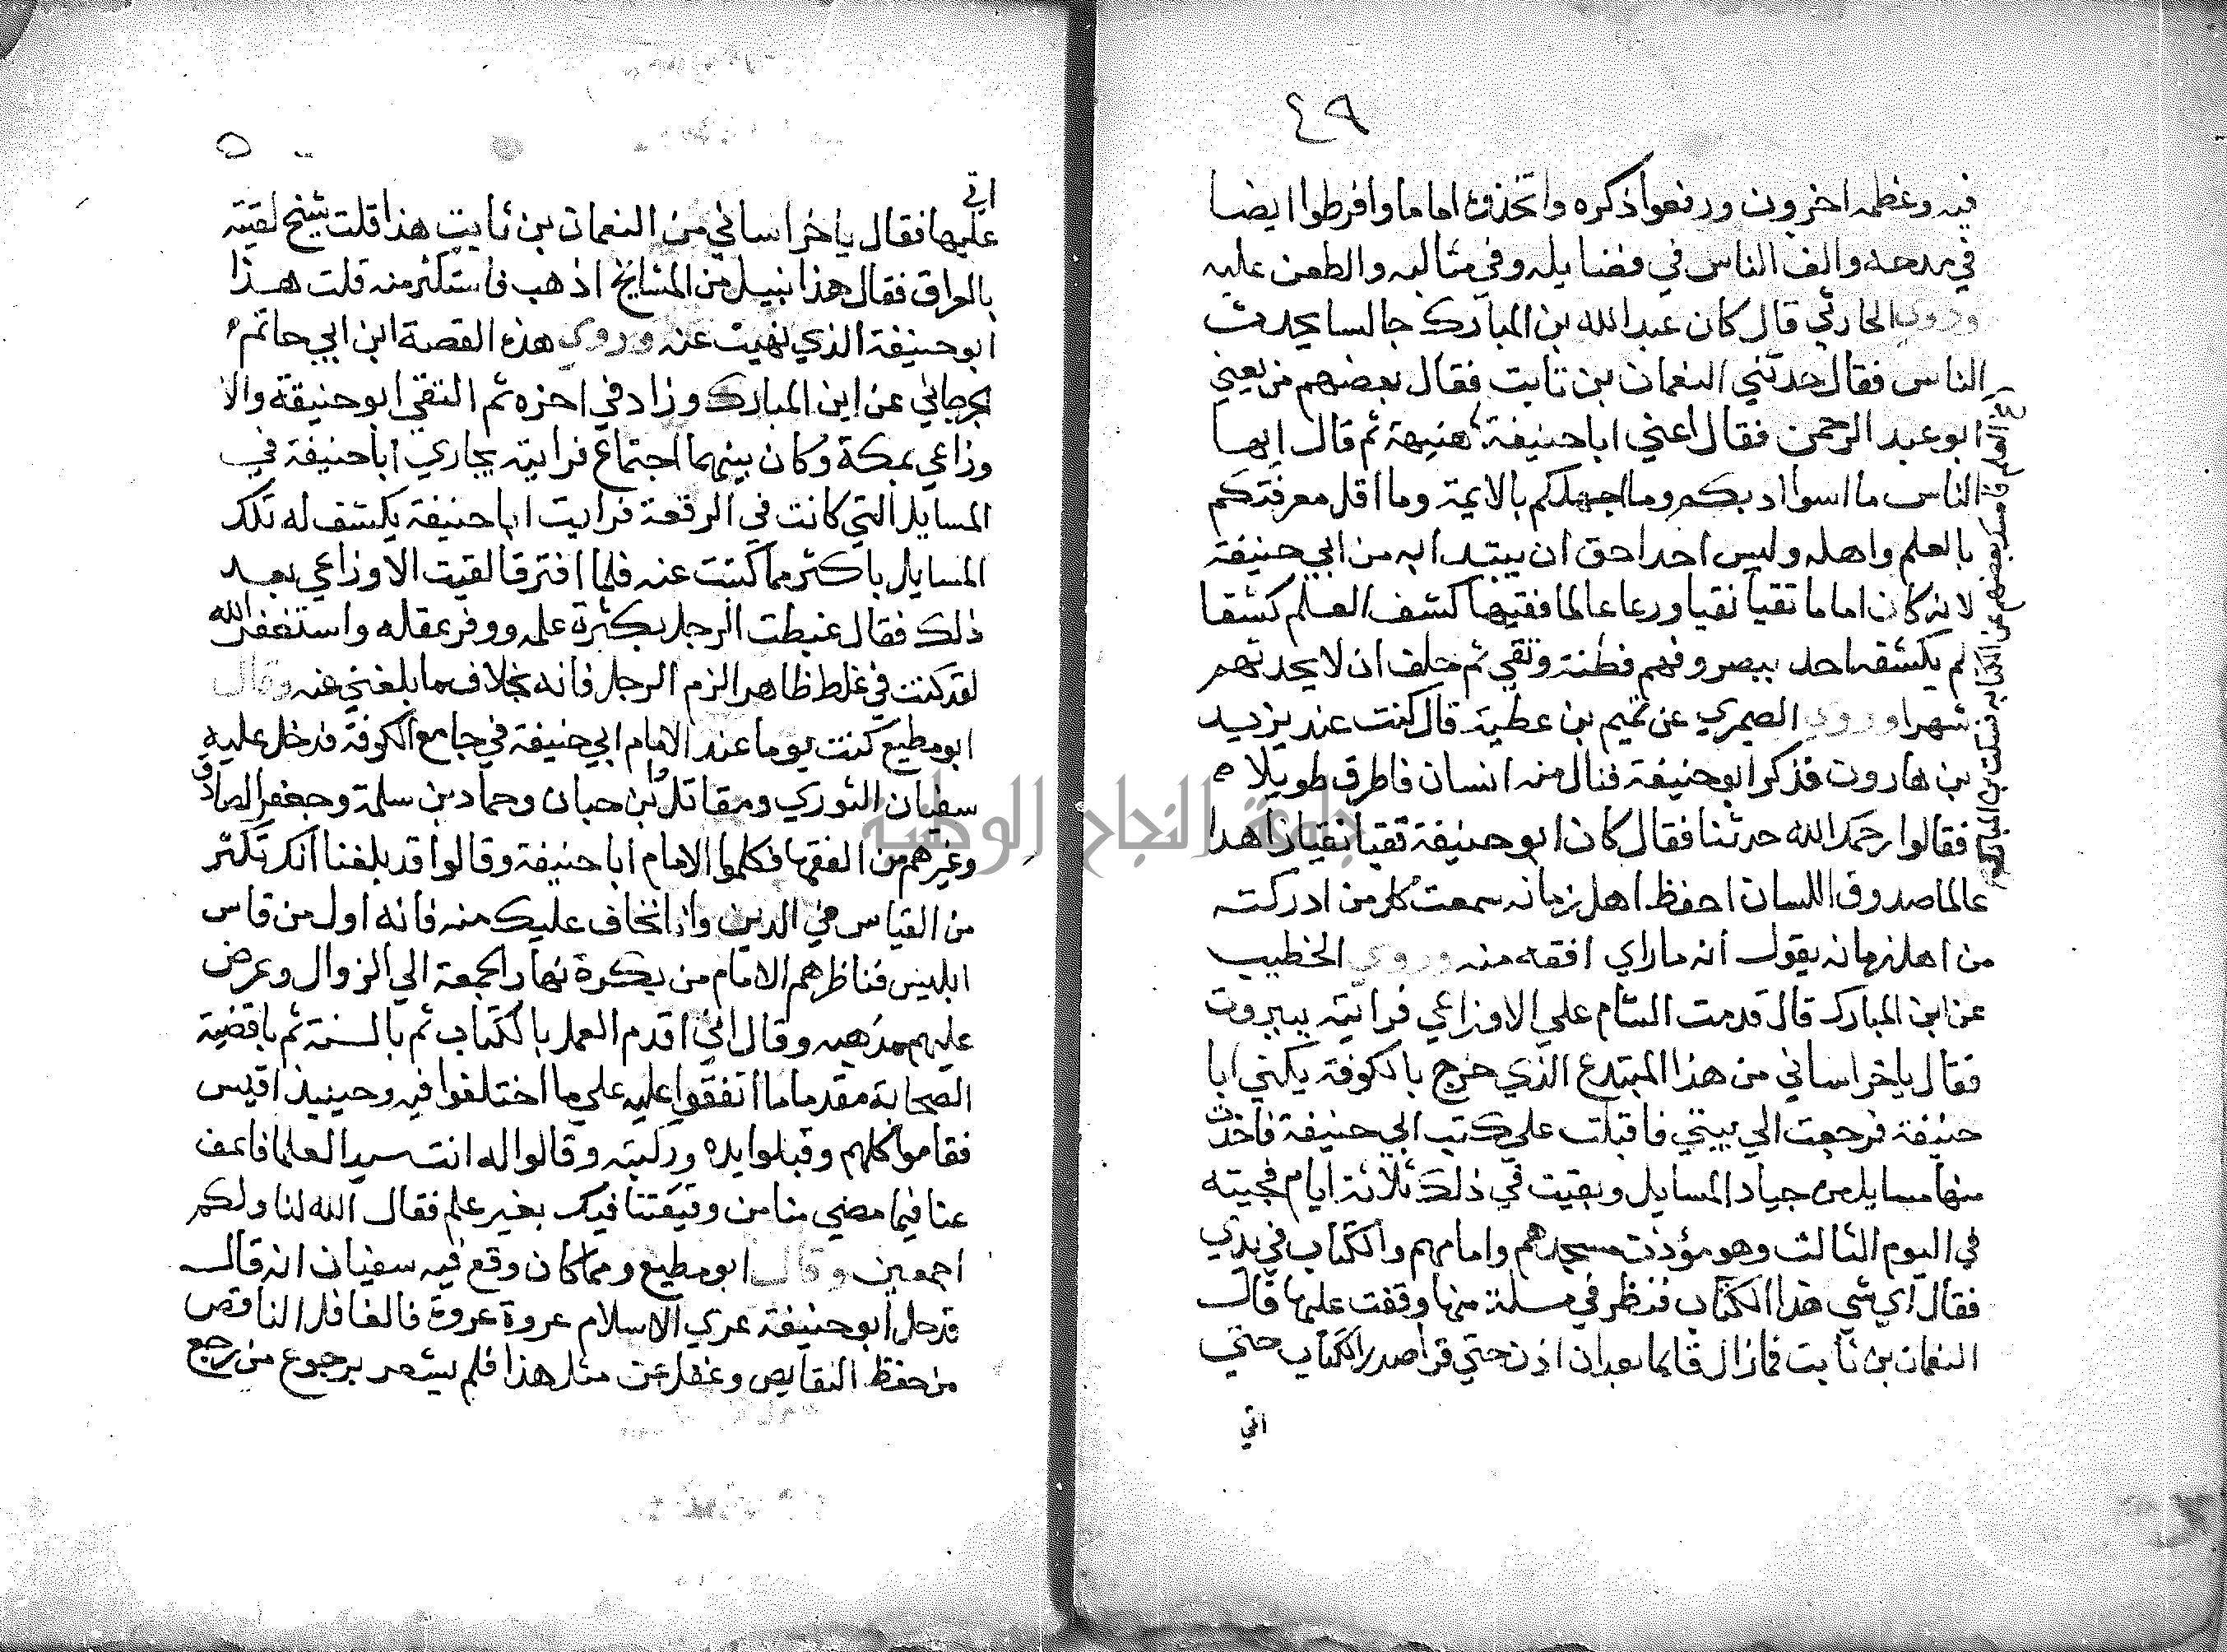 ٤٩
فيه وعظمه اخرون ورفعوا ذكره واتخذوه اماما وافرطوا ايضا
في مدحه والف الناس في فضايله وفي مثالبه والطعن عليه
وروي الحارثي قال كان عبد الله بن المبارك جالسا يحدث
الناس فقال حدثني النعمان بن ثابت فقال بعضهم من يعني
ابو عبد الرحمن فقال اعني ابا حنيفة هنيهة ثم قال ايها
الناس ما اسوا ادبكم وما اجهلكم بالايمة وما اقل معرفتكم
بالعلم واهله وليس احد احق ان يبتدا به من ابي حنيفة
لانه كان اماما تقيا نقيا ورعا عالما فقيها كشف العلم كشفا
لم يكشفه احد ببصر وفهم وفطنة وتقي ثم حلف ان لا يحدثهم
شهرا وروي الصيمري عن تميم بن عطية قال كنت عند يزيد
بن هارون فذكر ابو حنيفة فنال منه انسان فاطرق طويلا
فقالوا رحمك الله حدثنا فقال كان ابو حنيفة تقيا نقيا زاهدا
عالما صدوق اللسان احفظ اهل زمانه سمعت كل من ادركته
من اهل زمانه يقول انه ما راي افقه منه وروي الخطيب
عن ابن المبارك قال قدمت الشام علي الاوزاعي فرايته ببيروت
فقال يا خراساني من هذا المبتدع الذي خرج بالكوفة يكني ابا
حنيفة فرجعت الي بيتي فاقبلت علي كتب ابي حنيفة فاخذت
منها مسايل من جياد المسايل وبقيت في ذلك ثلاثة ايام فجيته
في اليوم الثالث وهو مؤذن مسجدهم وامامهم والكتاب في يدي
فقال اي شي هذا الكتاب فنظر في مسلة منها وقفت عليها قال
النعمان بن ثابت فمازال قايما بعد ان اذن حتي قرا صدر الكتاب حتي
اتي
فامسك بعضهم عن الكتابة فسكت ابن المبارك
٥
اتي
عليها فقال يا خراساني من النعمان بن ثابت هذا قلت شيخ لقيته
بالعراق فقال هذا نبيل من المشايخ اذهب فاستكثر منه قلت هذا
ابو حنيفة الذي نهيت عنه وروي هذه القصة ابن ابي حاتم
الجرجاني عن ابن المبارك وزاد في اخره ثم التقي ابو حنيفة والا
وزاعي بمكة وكان بينهما اجتماع فرايته يجاري ابا حنيفة في
المسايل التي كانت في الرقعة فرايت ابا حنيفة يكشف له تلك
المسايل باكثر مما كتبت عنه فلما افترقا لقيت الاوزاعي بعد
ذلك فقال غبطت الرجل بكثرة علمه ووفر عقله واستغفر الله
لقد كنت في غلط ظاهر الزم الرجل فانه بخلاف ما بلغني عنه وقال
ابو مطيع كنت يوما عند الامام ابي حنيفة في جامع الكوفة فدخل عليه
سفيان الثوري ومقاتل بن حبان وحماد بن سلمة وجعفر الصادق
وغيرهم من الفقها فكلموا الامام ابا حنيفة وقالوا قد بلغنا انك تكثر
من القياس في الدين وانا نخاف عليك منه فانه اول من قاس
ابليس فناظرهم الامام من بكرة نهار الجمعة الي الزوال وعرض
عليهم مذهبه وقال اني اقدم العمل بالكتاب ثم بالسنة ثم باقضية
الصحابة مقدما ما اتفقوا عليه علي ما اختلفوا فيه وحينيذ اقيس
فقاموا كلهم وقبلوا يده وركبته وقالوا له انت سيد العلما فاعف
عنا فيما مضي منا من وقيعتنا فيك بغير علم فقال الله لنا ولكم
اجمعين وقال ابو مطيع ومما كان وقع فيه سفيان انه قال
قد حل ابو حنيفة عري الاسلام عروة عروة فالغافل الناقص
من حفظ النقايص وغفل عن مثل هذا فلم يشعر برجوع من رجع
جامعة النجاح الوطنية